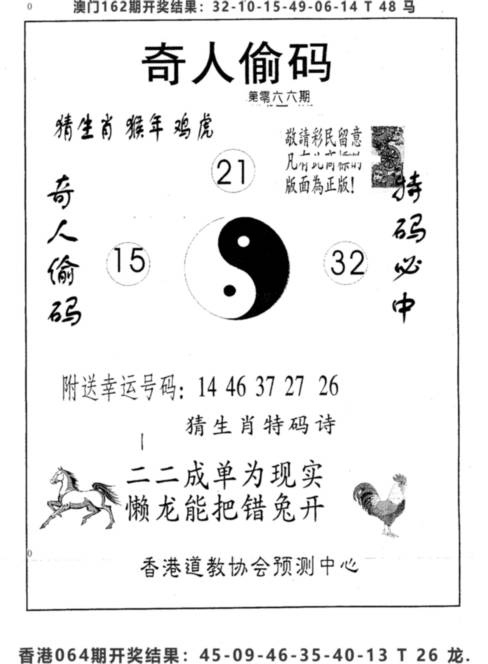 澳门162期开奖结果：32-10-15-49-06-14 T 48 马
奇人偷码
第零六六期
猜生肖 猴年 鸡虎
敬請彩民留意
凡有此商標的
版面為正版!
21
奇人偷码
特码必中
15
32
附送幸运号码：14 46 37 27 26
猜生肖特码诗
二二成单为现实
懒龙能把错兔开
香港道教协会预测中心
香港064期开奖结果：45-09-46-35-40-13 T 26 龙.